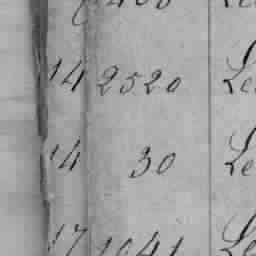 14 2520 Le
14 30 Le
17 1041 Le